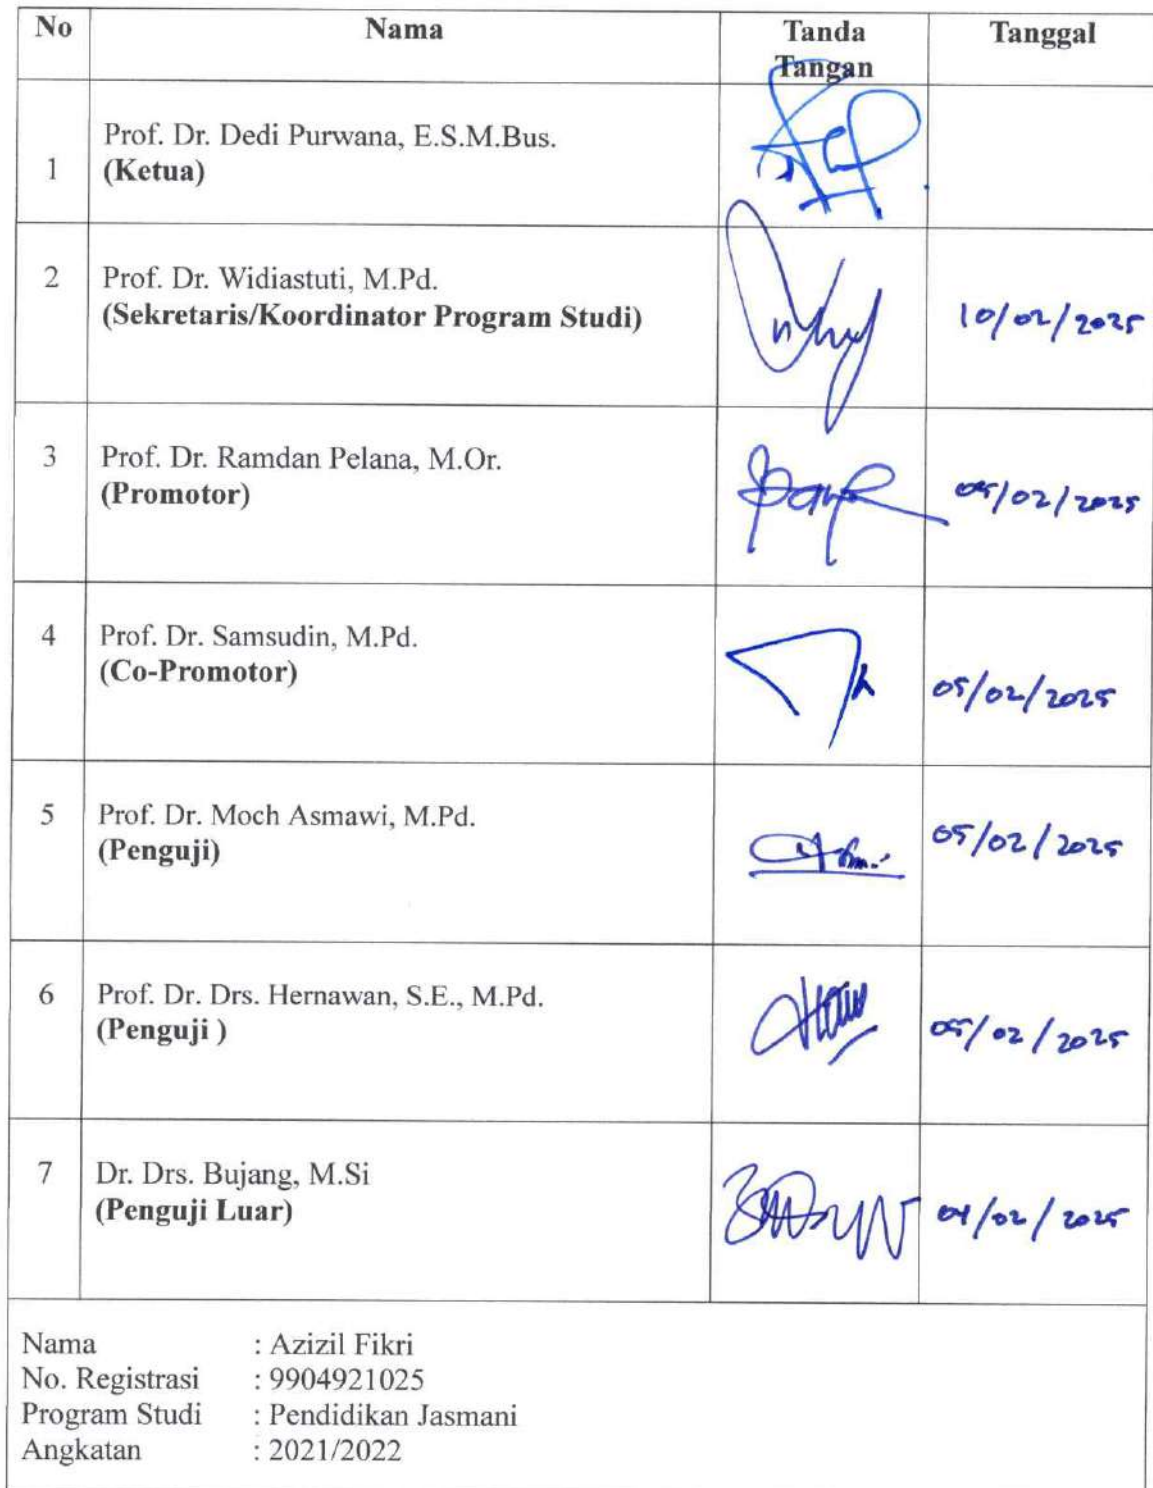 No Nama Tanda Tangan Tanggal
1 Prof. Dr. Dedi Purwana, E.S.M.Bus.
(Ketua)
2 Prof. Dr. Widiastuti, M.Pd.
(Sekretaris/Koordinator Program Studi) 10/02/2025
3 Prof. Dr. Ramdan Pelana, M.Or.
(Promotor) /02/2025
4 Prof. Dr. Samsudin, M.Pd.
(Co-Promotor) 05/02/2025
5 Prof. Dr. Moch Asmawi, M.Pd.
(Penguji) 05/02/2025
6 Prof. Dr. Drs. Hernawan, S.E., M.Pd.
(Penguji ) 05/02/2025
7 Dr. Drs. Bujang, M.Si
(Penguji Luar) 04/02/2025
Nama : Azizil Fikri
No. Registrasi : 9904921025
Program Studi : Pendidikan Jasmani
Angkatan : 2021/2022